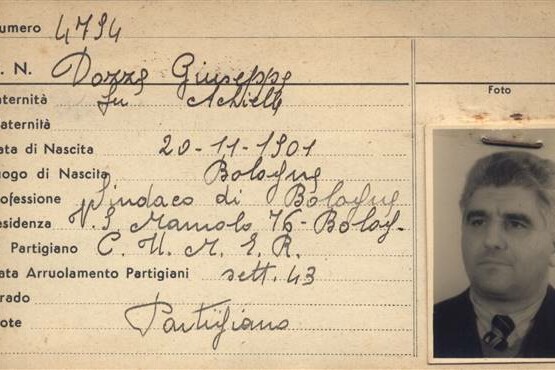 umero 4794
. N. Dozza Giuseppe
aternità fu Achille
aternità
ata di Nascita 20-11-1901
uogo di Nascita Bologna
rofessione Sindaco di Bologna
esidenza V. S. Mamolo 76 - Bolog.
Partigiano C. U. M. E. R.
ata Arruolamento Partigiani sett. 43
rado
ote Partigiano
Foto